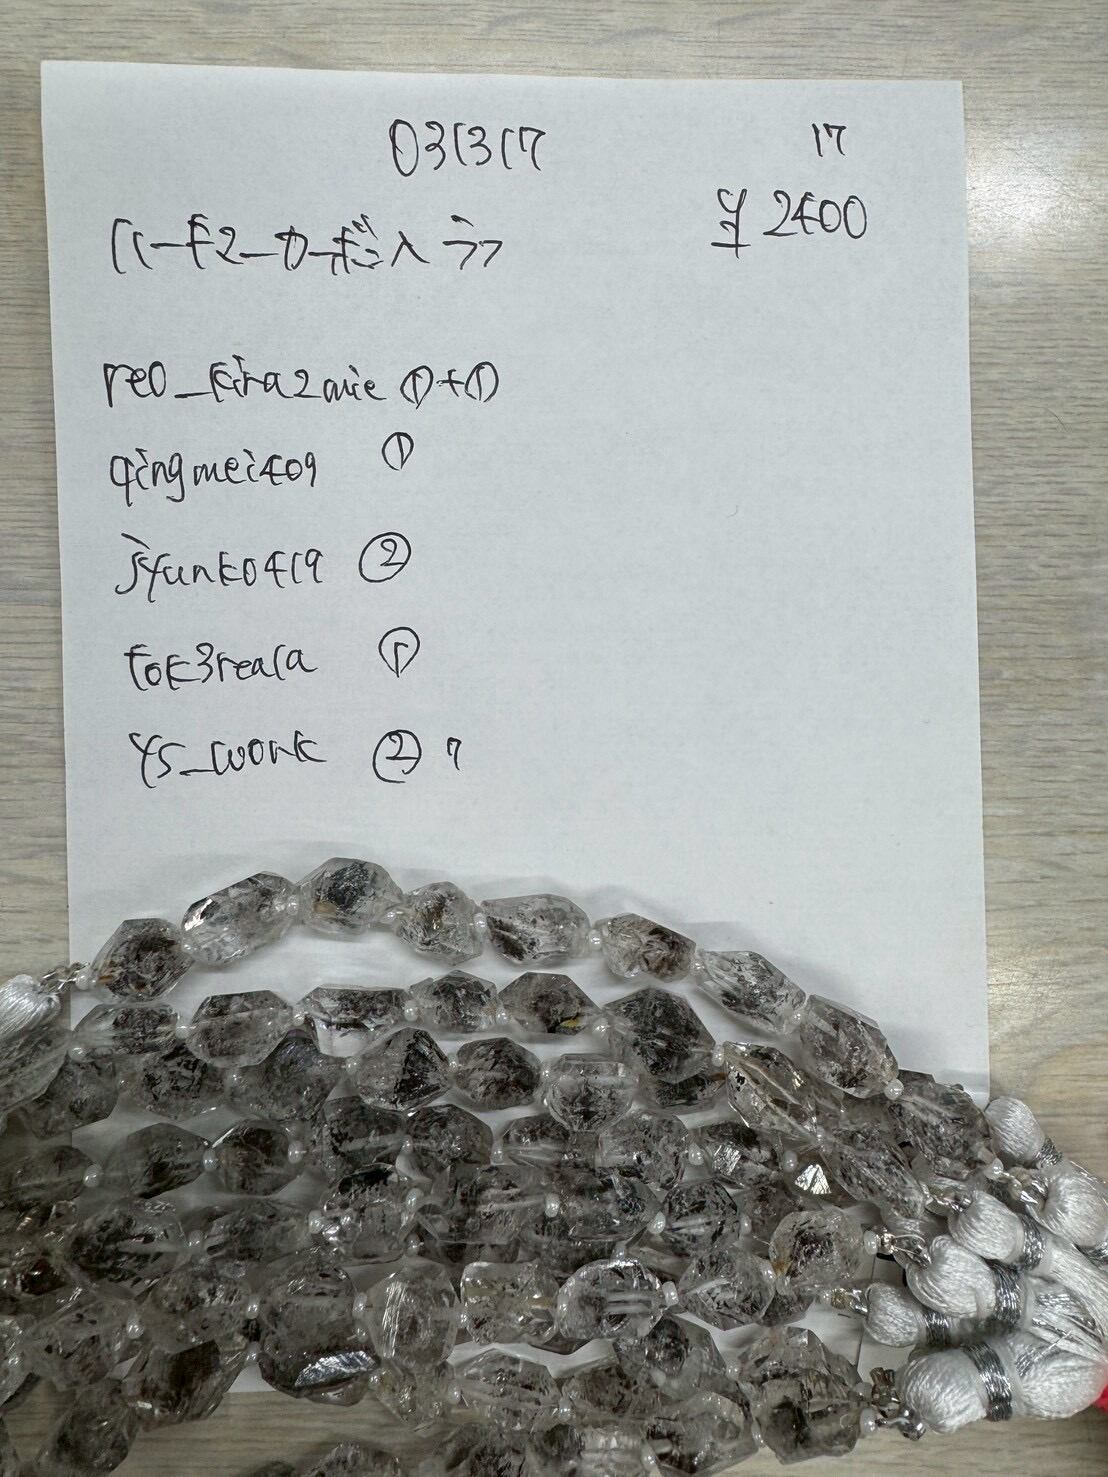 031317 17
ハーキマーカーボン入 ラフ ¥2400
reo_kira2mie ①+①
qingmei409 ①
jyunko419 ②
tok3reala ①
ys_work ② 7